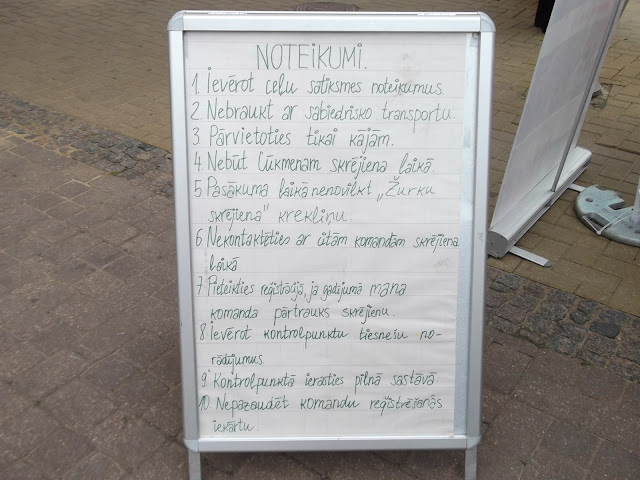 NOTEIKUMI.
1. Ievērot ceļu satiksmes noteikumus.
2. Nebraukt ar sabiedrisko transportu.
3. Pārvietoties tikai kājām.
4. Nebūt Cūkmenam skrējiena laikā.
5. Pasākuma laikā nenovilkt „Žurku
skrējiena" krekliņu.
6. Nekontaktēties ar citām komandām skrējiena
laikā
7. Pieteikties reģistrācijā, ja gadījumā mana
komanda pārtrauks skrējienu.
8. Ievērot kontrolpunktu tiesnešu no-
rādījumus.
9. Kontrolpunktā ierasties pilnā sastāvā.
10. Nepazaudēt komandu reģistrēšanās
iekārtu.